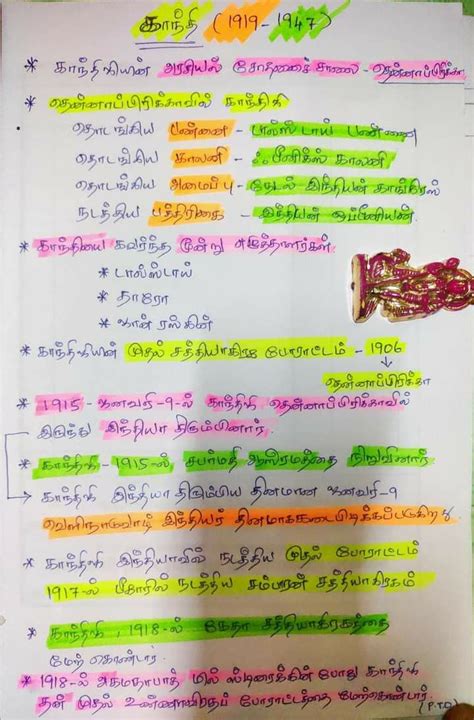 காந்தி (1919-1947)
* காந்தியின் அரசியல் சோதனைச்சாலை - தென்னாப்பிரிக்கா
* தென்னாப்பிரிக்காவில் காந்தி
தொடங்கிய பண்ணை - டால்ஸ்டாய் பண்ணை
தொடங்கிய காலனி - ஃபீனிக்ஸ் காலனி
தொடங்கிய அமைப்பு - நேடல் இந்தியன் காங்கிரஸ்
நடத்திய பத்திரிகை - இந்தியன் ஒப்பீனியன்
* காந்தியை கவர்ந்த மூன்று எழுத்தாளர்கள்
* டால்ஸ்டாய்
* தாரோ
* ஜான் ரஸ்கின்
* காந்தியின் முதல் சத்தியாகிரக போராட்டம் - 1906
தென்னாப்பிரிக்கா
* 1915 - ஜனவரி-9-ல் காந்தி தென்னாப்பிரிக்காவில்
இருந்து இந்தியா திரும்பினார்.
* காந்தி - 1915-ல், சபர்மதி ஆஸ்ரமத்தை நிறுவினார்
காந்தி இந்தியா திரும்பிய தினமான ஜனவரி-9
வெளிநாடுவாழ் இந்தியர் தினமாக கடைபிடிக்கப்படுகிறது.
* காந்தி இந்தியாவில் நடத்திய முதல் போராட்டம்
1917-ல் பீகாரில் நடத்திய சம்பரான் சத்தியாகிரகம்
* காந்தி, 1918-ல் கேதா சத்தியாகிரகத்தை
மேற்கொண்டார்.
* 1918-ல் அகமதாபாத் மில் ஸ்டிரைக்கின் போது காந்தி
தன் முதல் உண்ணாவிரதப் போராட்டத்தை மேற்கொண்டார்.
(P.T.O)